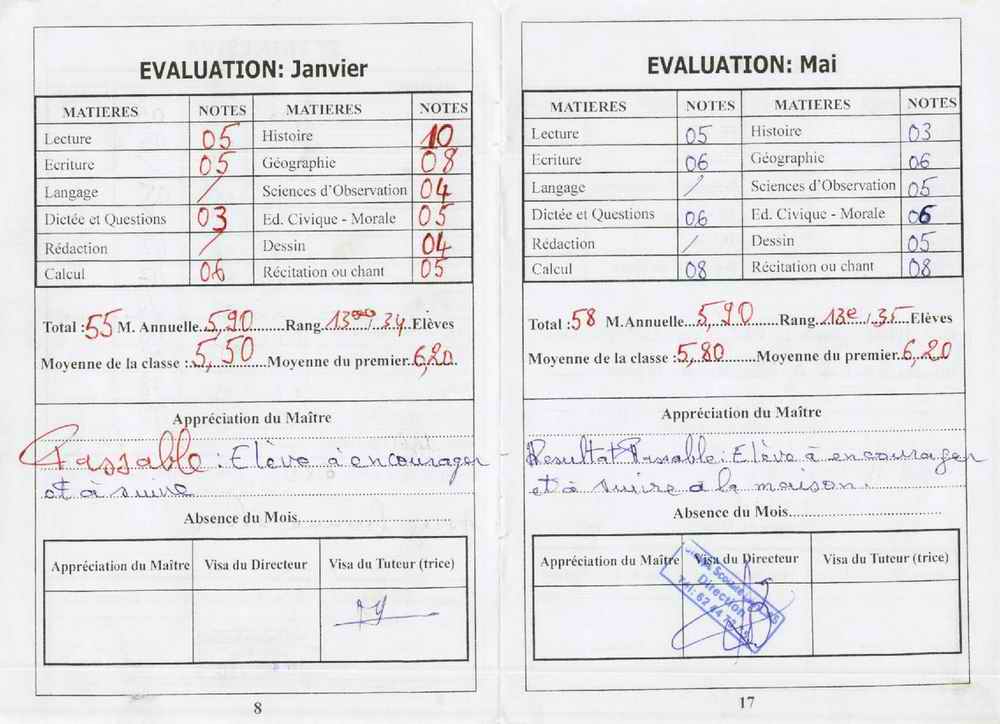 EVALUATION: Janvier
MATIERES NOTES MATIERES NOTES
Lecture 05 Histoire 10
Ecriture 05 Géographie 08
Langage / Sciences d'Observation 04
Dictée et Questions 03 Ed. Civique - Morale 05
Rédaction / Dessin 04
Calcul 06 Récitation ou chant 05
Total : 55 M. Annuelle 5,90 Rang 13 / 34 Elèves
Moyenne de la classe : 5,50 Moyenne du premier 6,20
Appréciation du Maître
Passable : Elève à encourager
et à suivre
Absence du Mois
Appréciation du Maître Visa du Directeur Visa du Tuteur (trice)
8
EVALUATION: Mai
MATIERES NOTES MATIERES NOTES
Lecture 05 Histoire 03
Ecriture 06 Géographie 06
Langage / Sciences d'Observation 05
Dictée et Questions 06 Ed. Civique - Morale 06
Rédaction / Dessin 05
Calcul 08 Récitation ou chant 08
Total : 58 M. Annuelle 5,90 Rang 13e / 35 Elèves
Moyenne de la classe : 5,80 Moyenne du premier 6,20
Appréciation du Maître
Resultat Passable : Elève à encourager
et à suivre à la maison.
Absence du Mois
Appréciation du Maître Visa du Directeur Visa du Tuteur (trice)
Direction
17